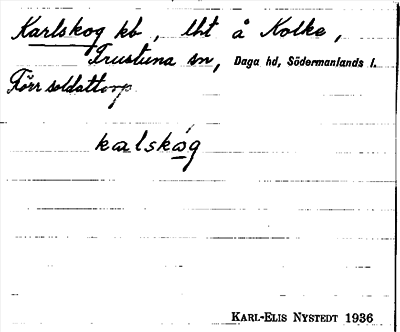 Karlskog kb, lht å Nolke,
Frustuna sn, Daga hd, Södermanlands l.
Förr soldattorp
kalskóg
KARL-ELIS NYSTEDT 1936